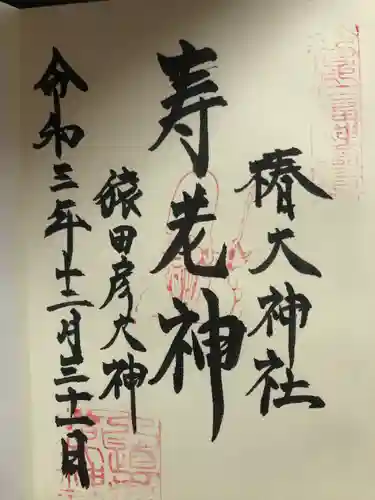 椿大神社
寿老神
猿田彦大神
令和三年十二月三十一日